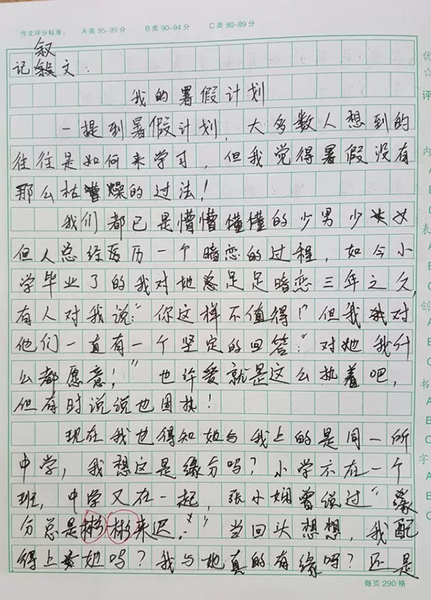 作文评分标准： A类 95-99分 B类 90-94分 C类 80-89分
叙
记文：
我的暑假计划
一提到暑假计划，大多数人想到的
往往是如何来学习，但我觉得暑假没有
那么枯燥的过法！
我们都已是懵懵懂懂的少男少女
但人总经历一个暗恋的过程，如今小
学毕业了的我对她足足暗恋三年之久，
有人对我说："你这样不值得！"但我对
他们一直有一个坚定的回答："对她我什
么都愿意！"也许爱就是这么执着吧，
但有时说说也困执！
现在我也得知她与我上的是同一所
中学，我想这是缘分吗？小学不在一个
班，中学又在一起，张小娴曾经过"缘
分总是彬彬来迟。"当回头想想，我配
得上她吗？我与她真的有缘吗？还是
每页 290 格
优
☆
评
内
表
创
书
字